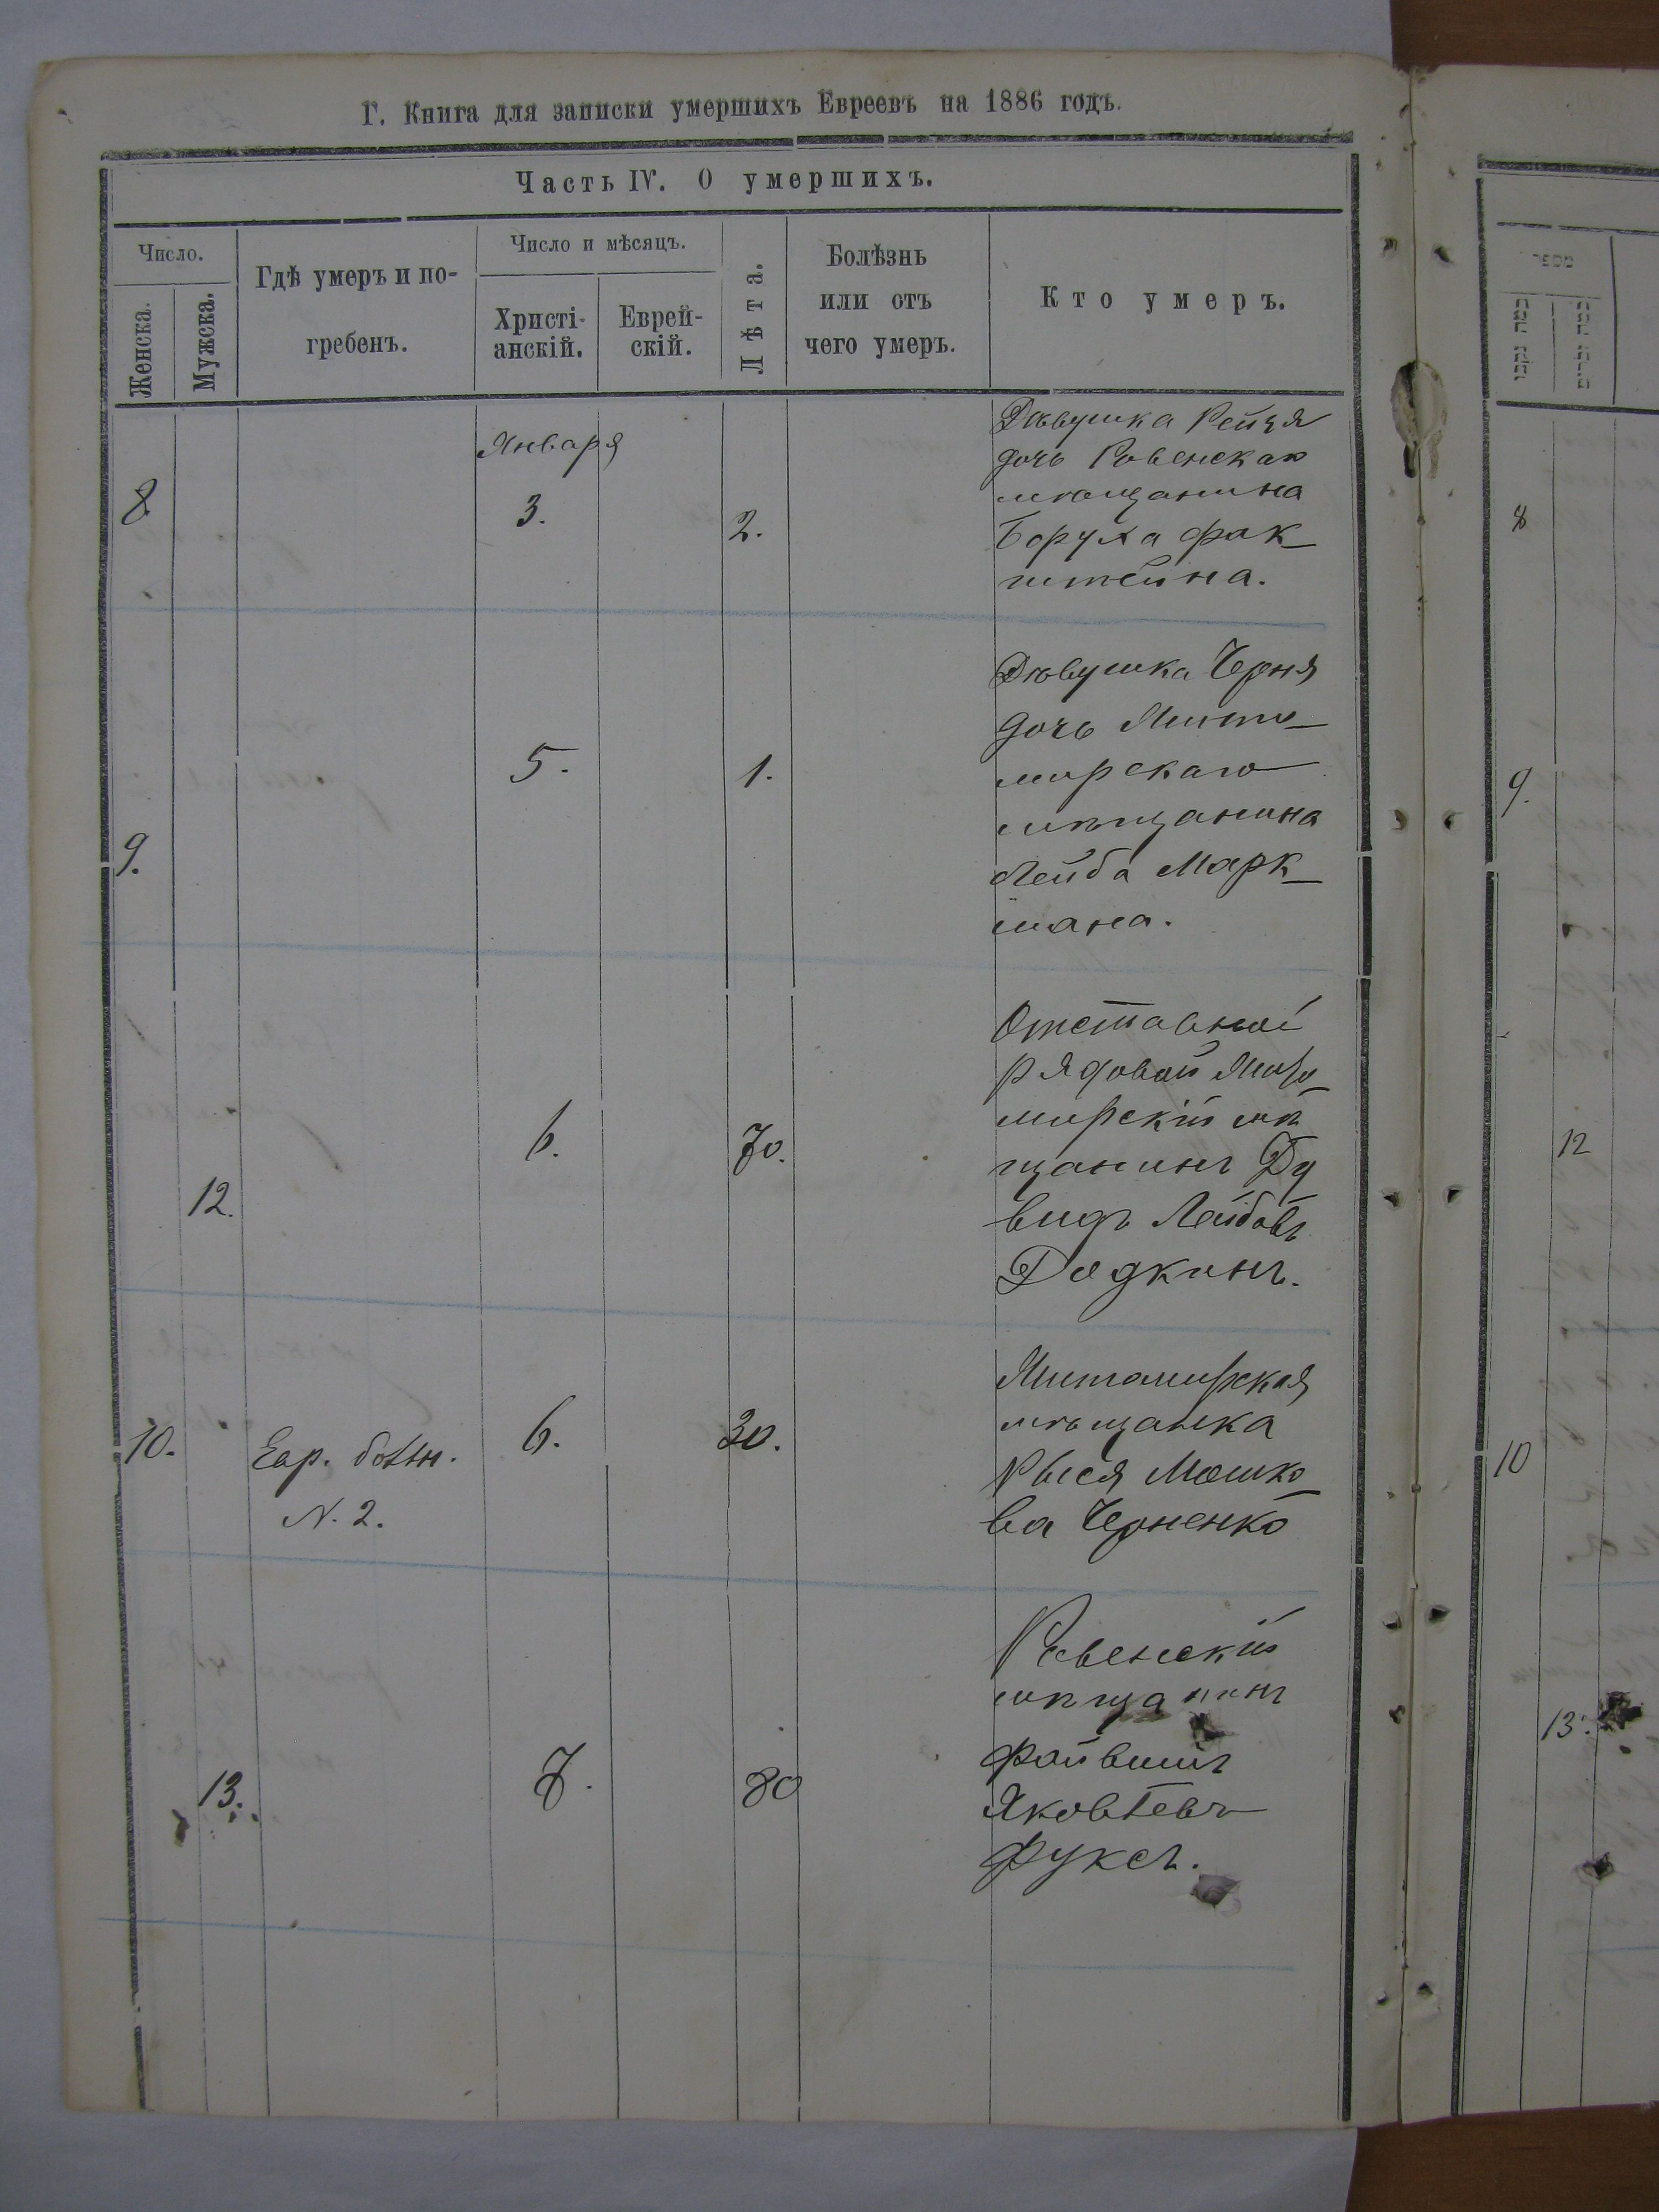 Г. Книга для записки умершихъ Евреевъ на 1886 годъ.
Часть IV. О умершихъ.
Число.
Женска.
Мужска.
Гдѣ умеръ и по-
гребенъ.
Число и мѣсяцъ.
Христі-
анскій.
Еврей-
скій.
Лѣта.
Болѣзнь
или отъ
чего умеръ.
Кто умеръ.
Января
8
3.
2.
Дѣвушка Рейзя
дочь Ровенскаго
мѣщанина
Боруха Фак
штейна.
9.
5.
1.
Дѣвушка Черня
дочь Жито-
мирскаго
мѣщанина
Лейба Марк-
мана.
12.
6.
70.
Отставной
рядовой Жито-
мирскій мѣ
щанинъ Да
видъ Лейбовъ
Додкинъ.
10.
Евр. больн.
N. 2.
6.
30.
Житомирская
мѣщанка
Рыся Мошко-
ва Черненко
13.
7.
80
Ровенскій
мѣщанинъ
Файвишъ
Яковлевъ
Фуксъ.
8
9.
12
10
13.